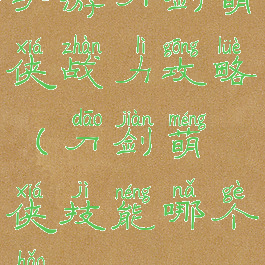 手游刀剑萌
xiá zhàn lì gōng lüè
侠战力攻略
dāo jiàn méng
（刀剑萌
xiá jì néng nǎ gè
侠技能哪个
hǎo